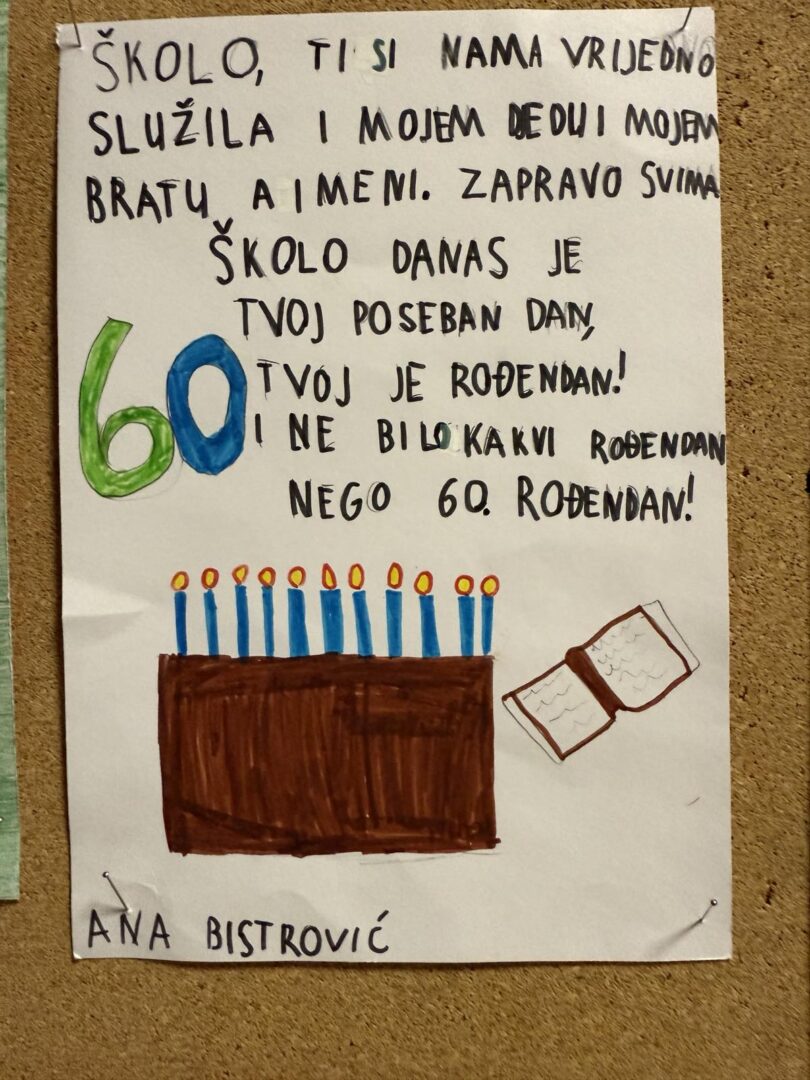 ŠKOLO, TI SI NAMA VRIJEDNO
SLUŽILA I MOJEM DEDU I MOJEM
BRATU A I MENI. ZAPRAVO SVIMA
ŠKOLO DANAS JE
TVOJ POSEBAN DAN,
60
TVOJ JE ROĐENDAN!
I NE BILO KAKVI ROĐENDAN
NEGO 60. ROĐENDAN!
ANA BISTROVIĆ